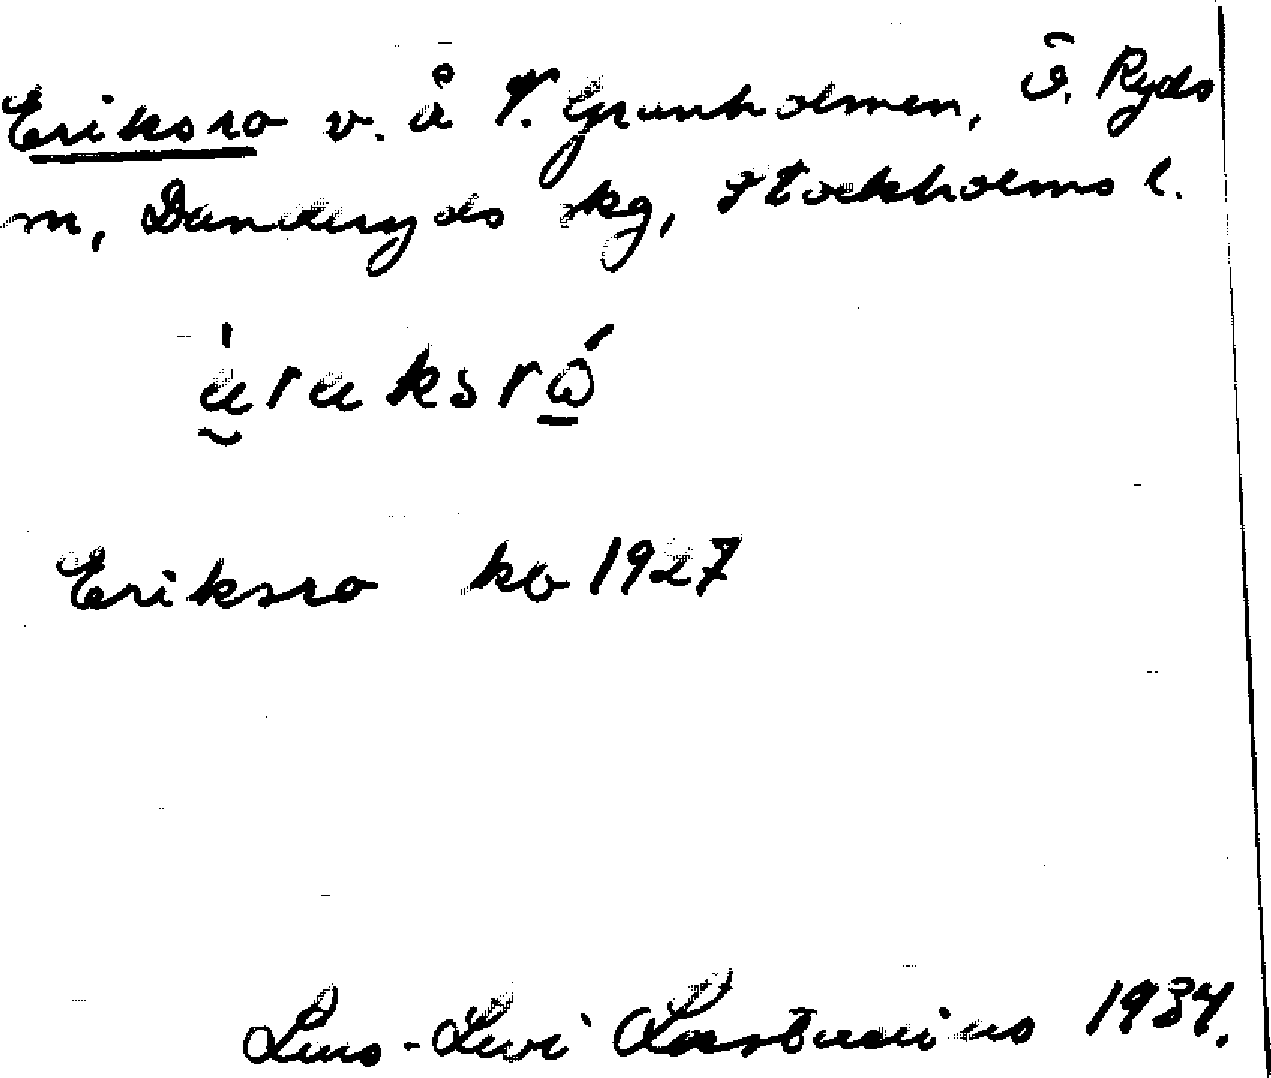 Eriksro v. å T. Granholmen, Ö. Ryds
m, Danderyds kg, Stockholms l.
Eriksro kb 1927
Lars-Levi Læstadius 1934.